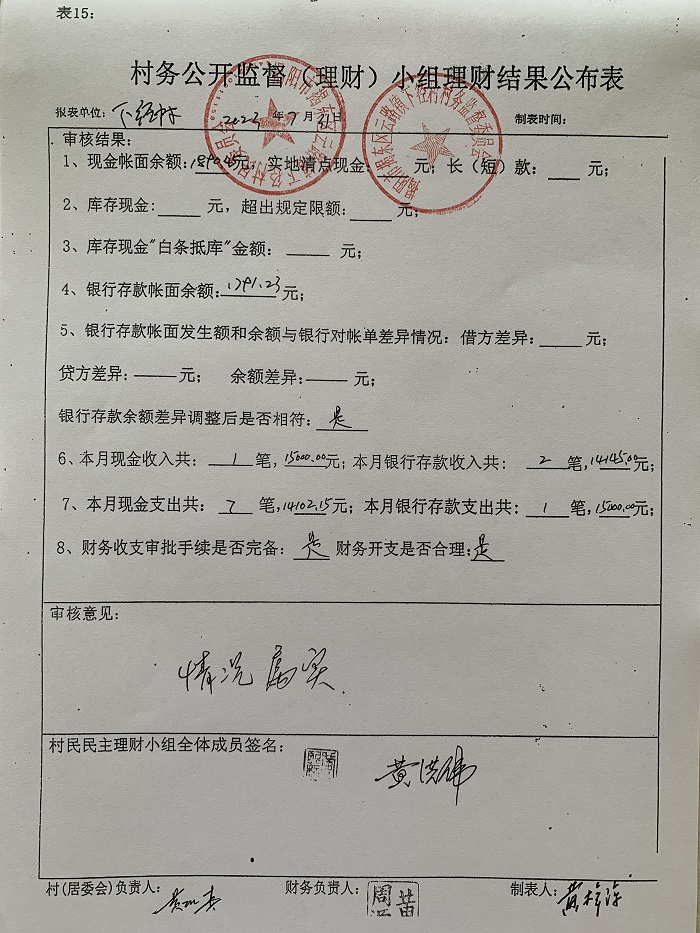 表15:
村务公开监督（理财）小组理财结果公布表
报表单位: 下径村 2023 年 7 月 31 日 制表时间:
审核结果:
1、现金帐面余额: 元; 实地清点现金: 元; 长（短）款: 元;
2、库存现金: 元, 超出规定限额: 元;
3、库存现金"白条抵库"金额: 元;
4、银行存款帐面余额: 1791.23 元;
5、银行存款帐面发生额和余额与银行对帐单差异情况: 借方差异: 元;
贷方差异: 元; 余额差异: 元;
银行存款余额差异调整后是否相符: 是
6、本月现金收入共: 1 笔, 15000.00元; 本月银行存款收入共: 2 笔, 14145.00元;
7、本月现金支出共: 7 笔, 14102.15元; 本月银行存款支出共: 1 笔, 15000.00元;
8、财务收支审批手续是否完备: 是 财务开支是否合理: 是
审核意见:
情况属实
村民民主理财小组全体成员签名:
黄洪伟
村(居委会)负责人: 财务负责人: 制表人: